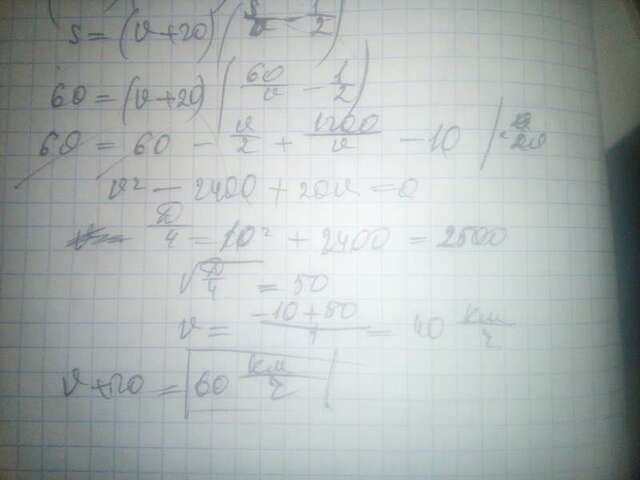 S = (v+20) (S/v - 1/2)
60 = (v+20) (60/v - 1/2)
60 = 60 - v/2 + 1200/v - 10 | · 2v
v² - 2400 + 20v = 0
D/4 = 10² + 2400 = 2500
√D/4 = 50
v = -10+50/1 = 40 км/ч
v+20 = 60 км/ч